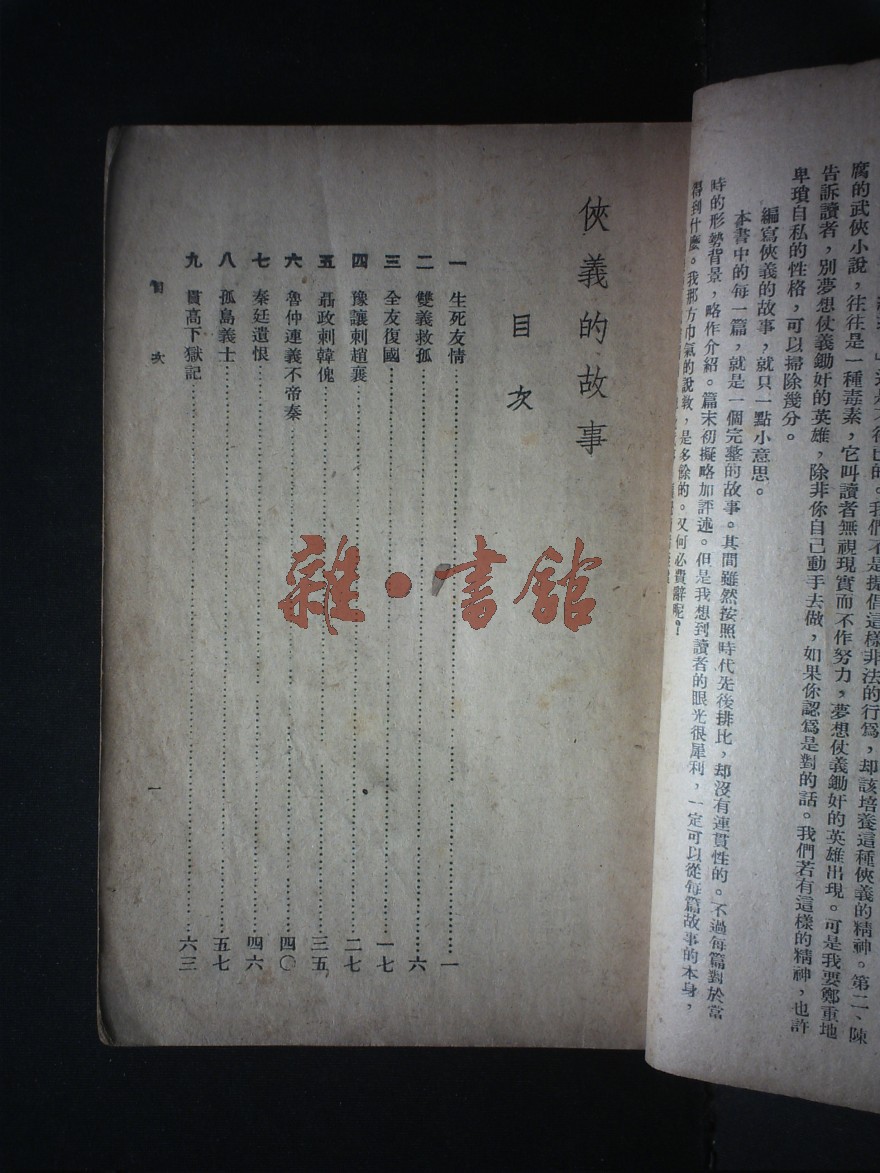 腐的武俠小說，往往是一種毒素，它叫讀者無視現實而不作努力，夢想仗義鋤奸的英雄出現。可是我要鄭重地
告訴讀者，別夢想仗義鋤奸的英雄，除非你自己動手去做，如果你認爲是對的話。我們若有這樣的精神，也許
卑瑣自私的性格，可以掃除幾分。
編寫俠義的故事，就只一點小意思。
本書中的每一篇，就是一個完整的故事。其間雖然按照時代先後排比，却沒有連貫性的。不過每篇對於當
時的形勢背景，略作介紹。篇末初擬略加評述。但是我想到讀者的眼光很犀利，一定可以從每篇故事的本身，
得到什麼。我那方巾氣的說教，是多餘的。又何必費辭呢？
俠義的故事
目次
一 生死友情 一
二 雙義救孤 六
三 全友復國 一七
四 豫讓刺趙襄 二七
五 聶政刺韓傀 三五
六 魯仲連義不帝秦 四〇
七 秦廷遺恨 四六
八 孤島義士 五七
九 貫高下獄記 六三
目次 一
雜·書館